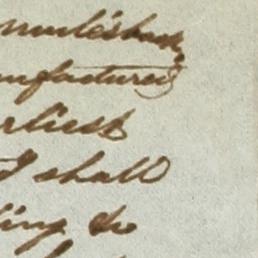 muleback
nufactured
rliest
I shall
ling to